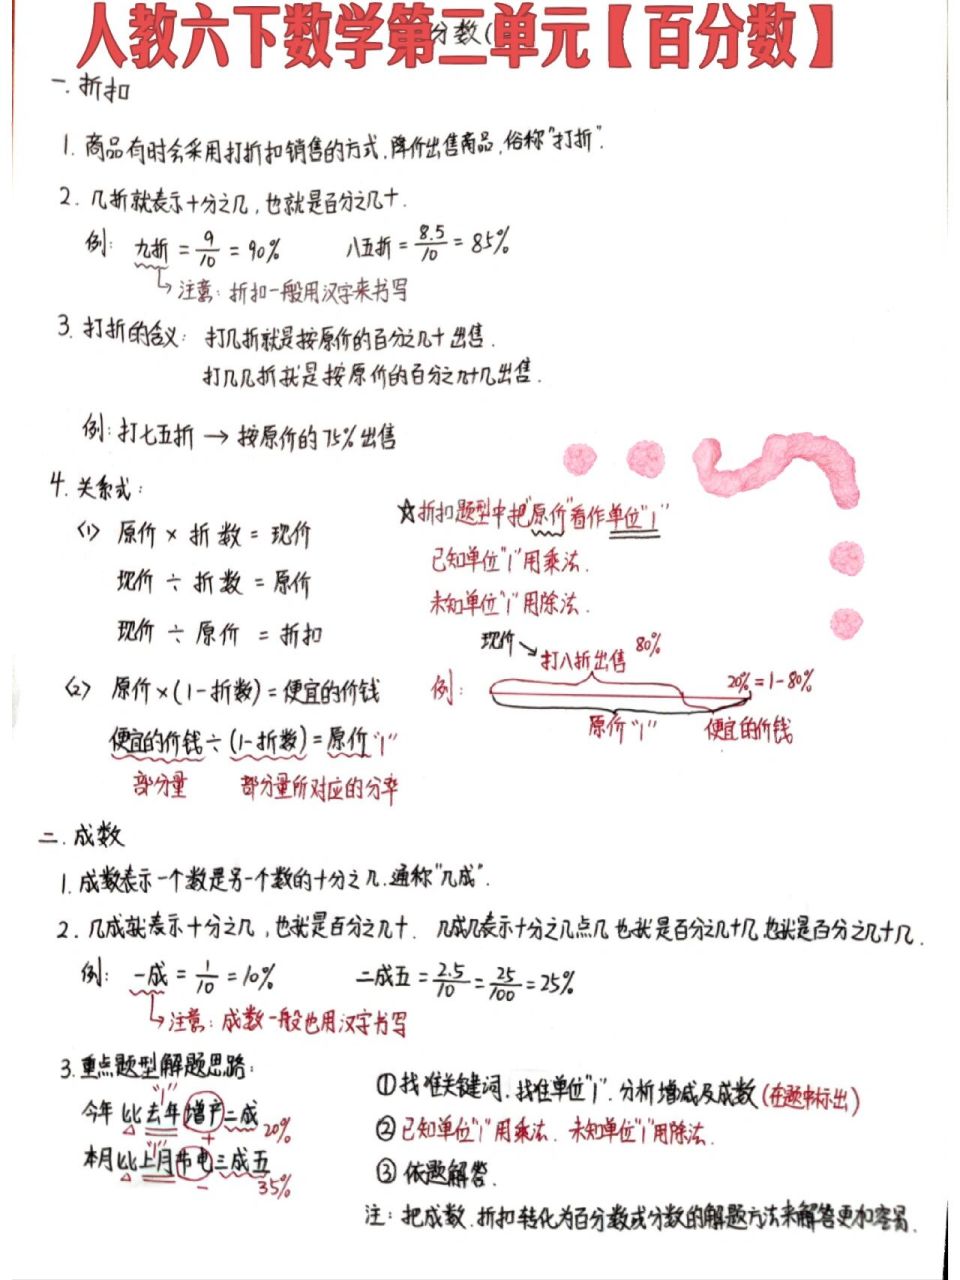 人教六下数学第二单元【百分数】
分数(
一. 折扣
1. 商品有时会采用打折扣销售的方式.降价出售商品.俗称"打折".
2. 几折就表示十分之几,也就是百分之几十.
例: 九折 = 9/10 = 90% 八五折 = 8.5/10 = 85%
注意: 折扣一般用汉字来书写
3. 打折的含义: 打几折就是按原价的百分之几十出售.
打几几折就是按原价的百分之几十几出售.
例: 打七五折 → 按原价的75%出售
4. 关系式:
☆折扣题型中把"原价"看作单位"1"
〈1〉 原价 × 折数 = 现价
已知单位"1"用乘法.
现价 ÷ 折数 = 原价
未知单位"1"用除法.
现价 ÷ 原价 = 折扣
现价 打八折出售 80%
〈2〉 原价×(1-折数)=便宜的价钱
例: 20%=1-80%
原价"1" 便宜的价钱
便宜的价钱÷(1-折数)=原价"1"
部分量 部分量所对应的分率
二. 成数
1. 成数表示一个数是另一个数的十分之几.通称"几成".
2. 几成就表示十分之几,也就是百分之几十. 几成几表示十分之几点几也就是百分之几十几也就是百分之几十几.
例: 一成 = 1/10 = 10% 二成五 = 2.5/10 = 25/100 = 25%
注意: 成数一般也用汉字书写
3. 重点题型解题思路:
"1"
今年比去年增产二成 20%
+
"1"
本月比上月节电三成五 35%
-
①找准关键词.找准单位"1".分析增减及成数(在题中标出)
②已知单位"1"用乘法. 未知单位"1"用除法.
③ 依题解答.
注: 把成数.折扣转化为百分数或分数的解题方法来解答更加容易.